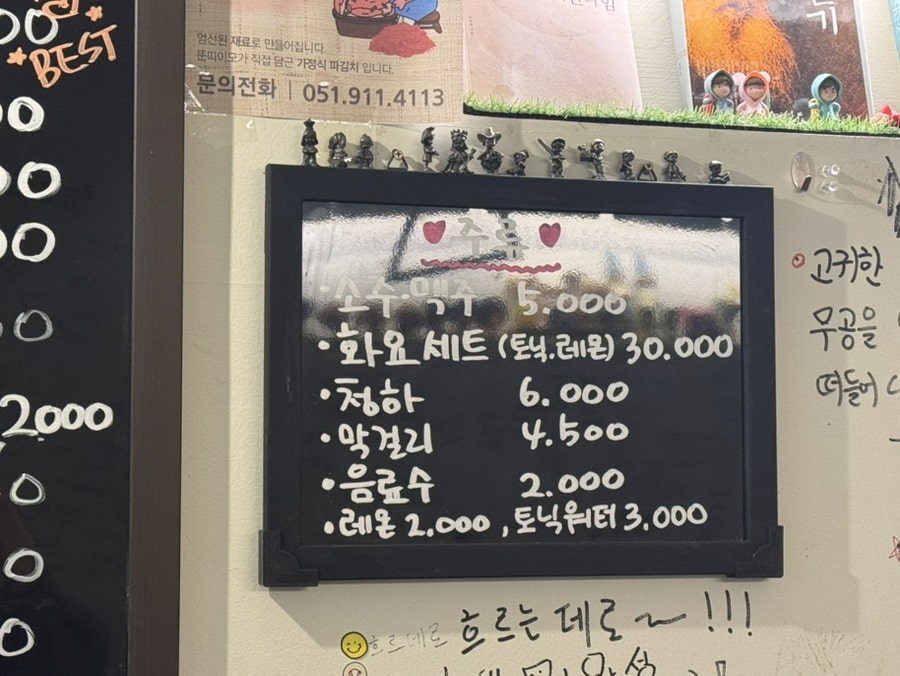 BEST
00
00
00
0
2.000
0
0
0
엄선된 재료로 만들어집니다.
뚠띠이모가 직접 담근 가정식 파김치 입니다.
문의전화 | 051.911.4113
기
주류
·소주.맥주 5.000
·화요세트 (토닉.레몬) 30.000
·청하 6.000
·막걸리 4.500
·음료수 2.000
·레몬 2.000 , 토닉워터 3.000
고귀한
무공을
떠들어
흐르데로 흐르는 데로~ !!!